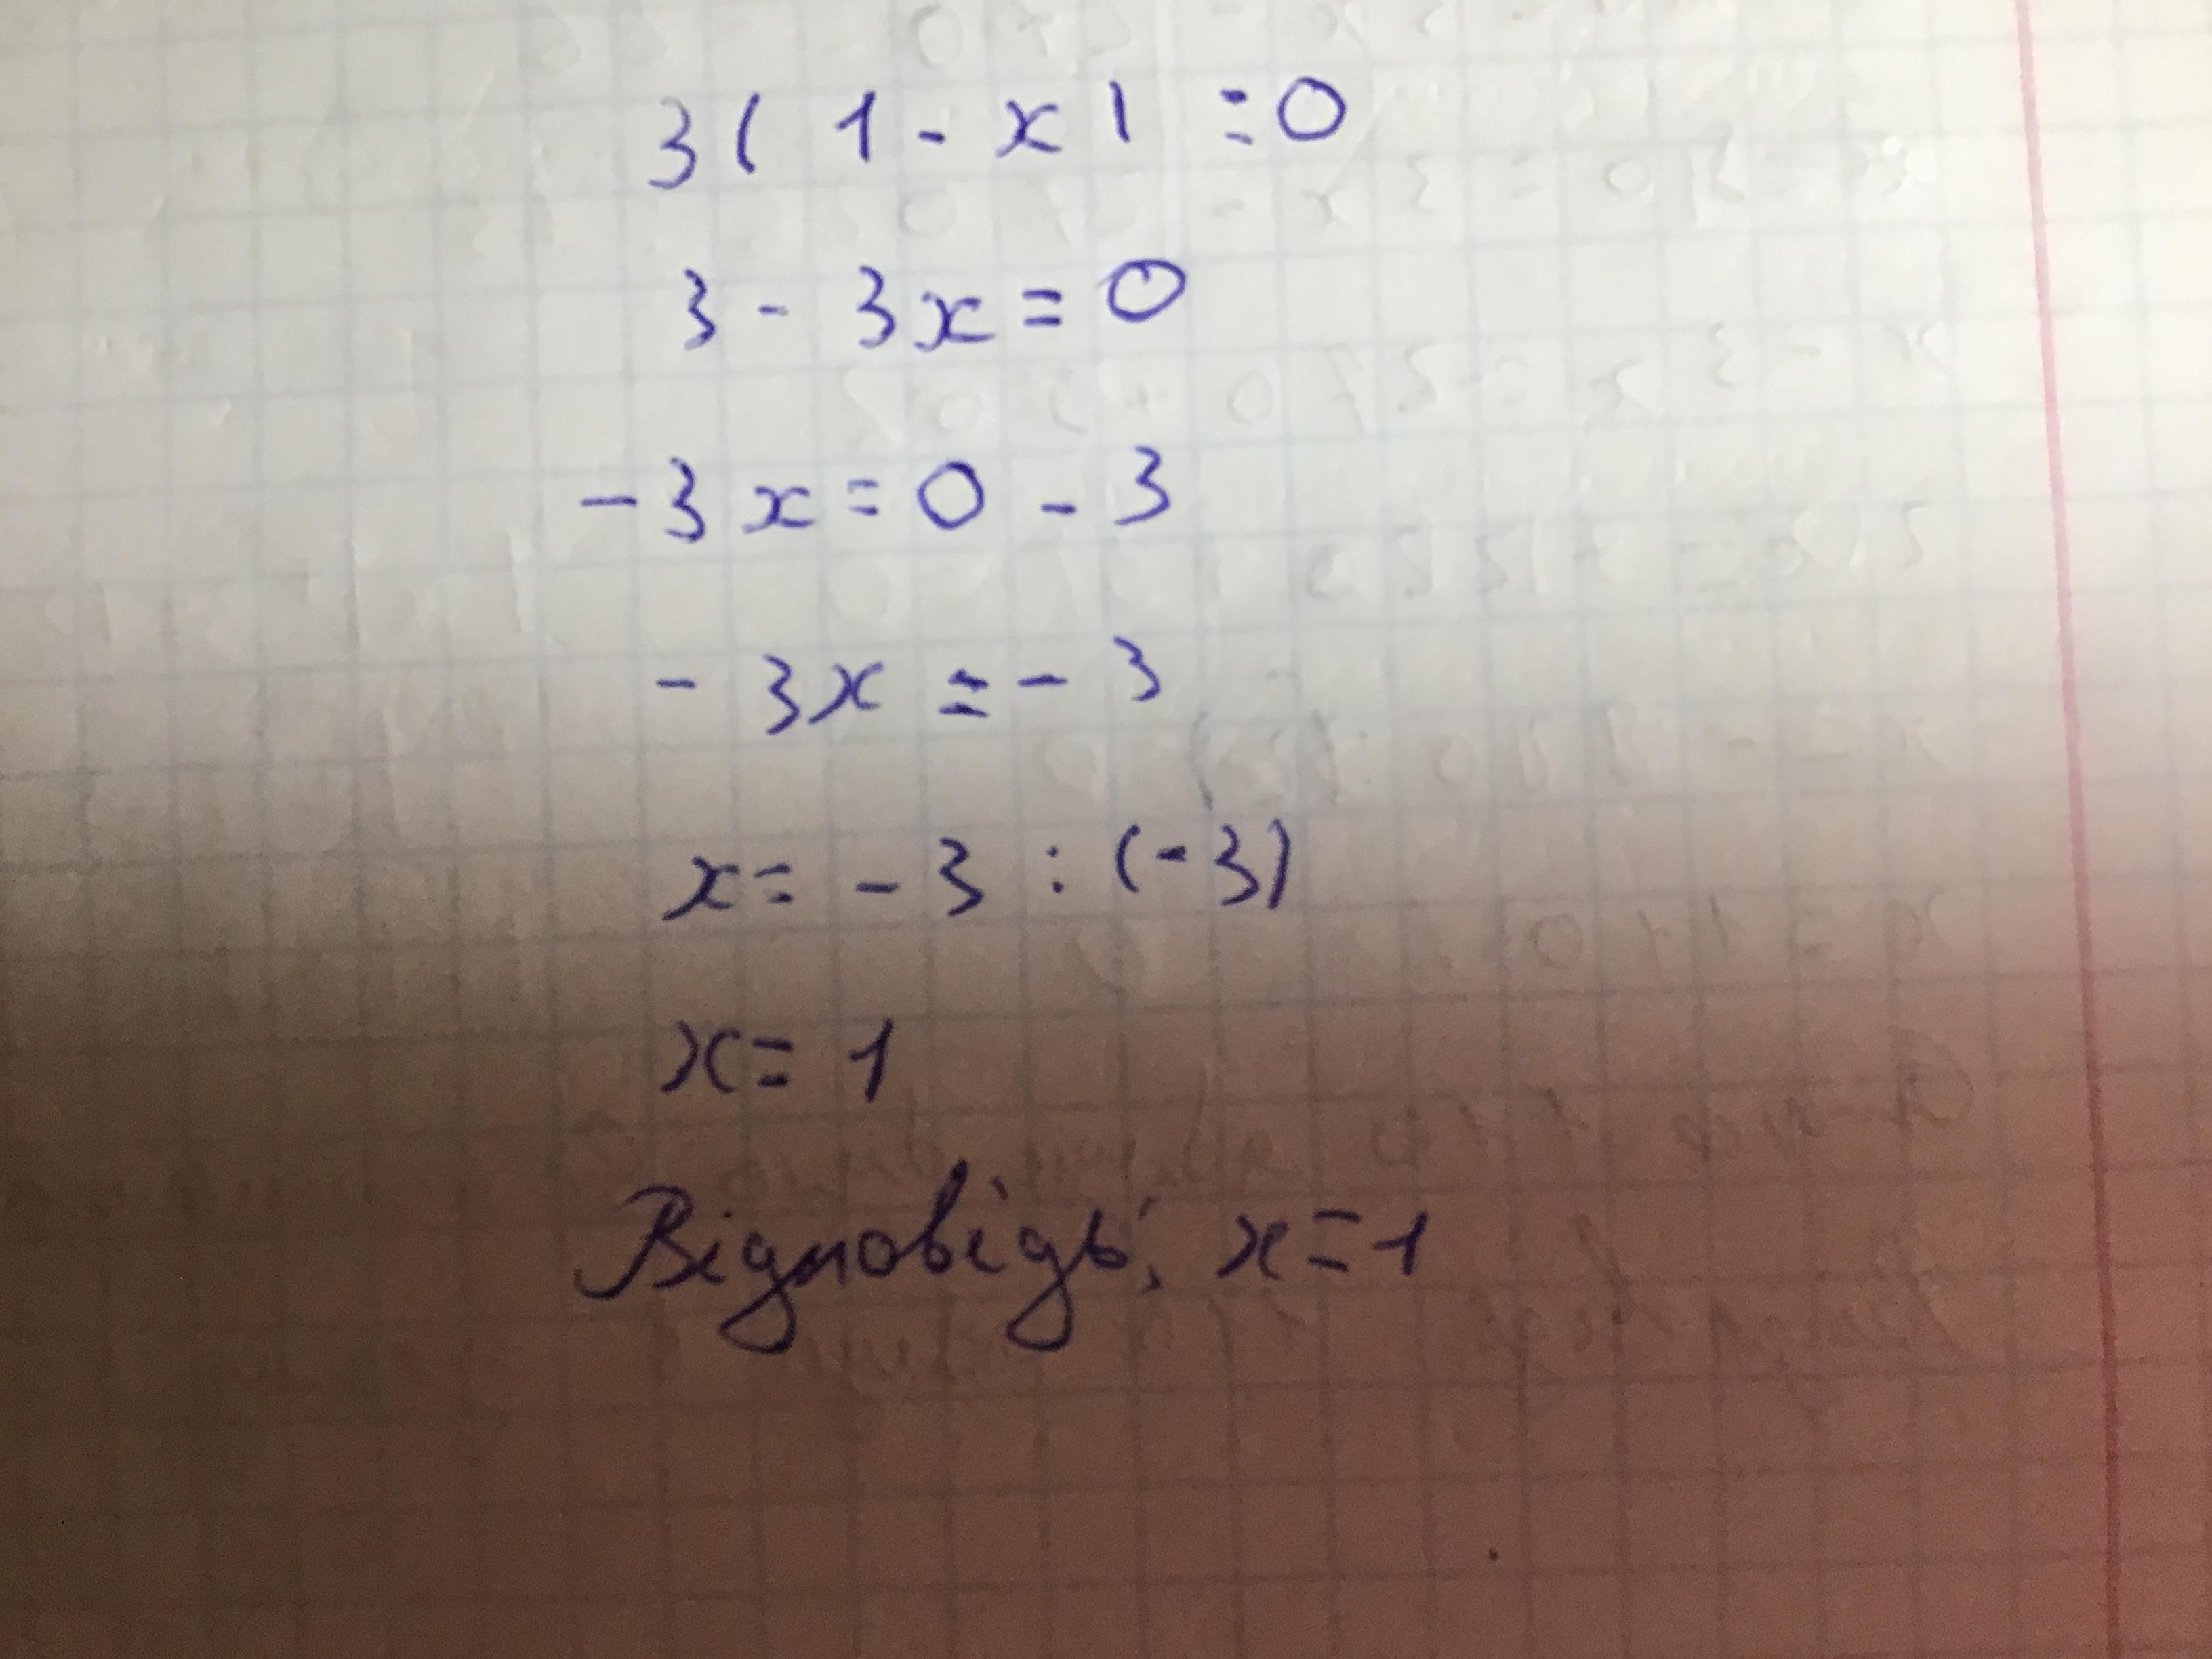 3(1-x)=0
3-3x=0
-3x=0-3
-3x=-3
x=-3:(-3)
x=1
Відповідь: x=1